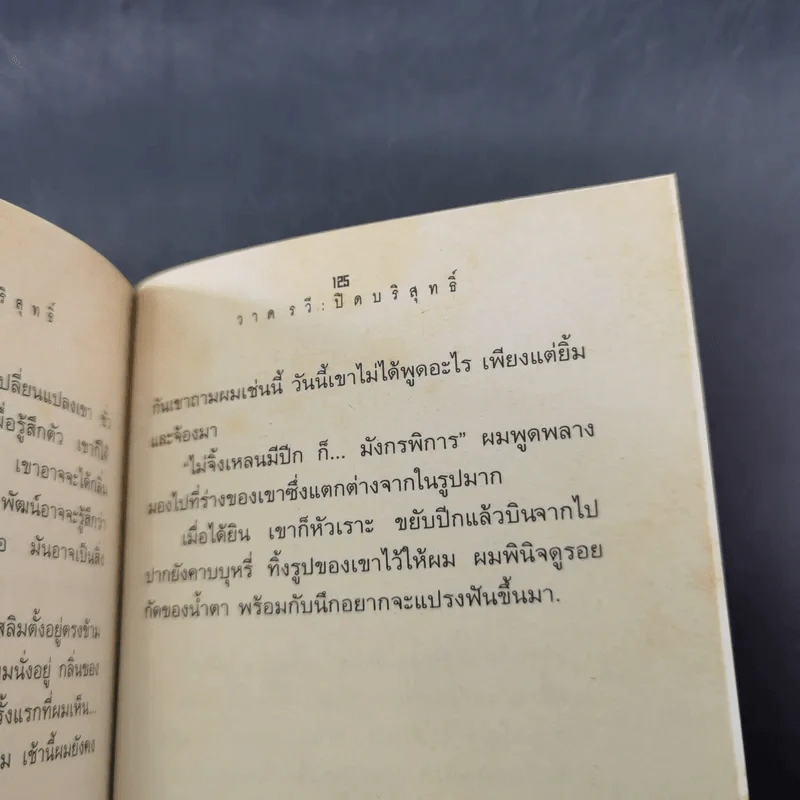 ริสุทธิ์
ปลี่ยนแปลงเขา ชั่ว
มื่อรู้สึกตัว เขาก็ได้
เขาอาจจะได้กลิ่น
พัฒน์อาจจะรู้สึกว่า
อ มันอาจเป็นสิ่ง
สลิมตั้งอยู่ตรงข้าม
มนั่งอยู่ กลิ่นของ
รั้งแรกที่ผมเห็น...
ม เช้านี้ผมยังคง
125
วาดรวี : ปีตบริสุทธิ์
กันเขาถามผมเช่นนี้ วันนี้เขาไม่ได้พูดอะไร เพียงแต่ยิ้ม
และจ้องมา
"ไม่จิ้งเหลนมีปีก ก็... มังกรพิการ" ผมพูดพลาง
มองไปที่ร่างของเขาซึ่งแตกต่างจากในรูปมาก
เมื่อได้ยิน เขาก็หัวเราะ ขยับปีกแล้วบินจากไป
ปากยังคาบบุหรี่ ทิ้งรูปของเขาไว้ให้ผม ผมพินิจดูรอย
กัดของน้ำตา พร้อมกับนึกอยากจะแปรงฟันขึ้นมา.